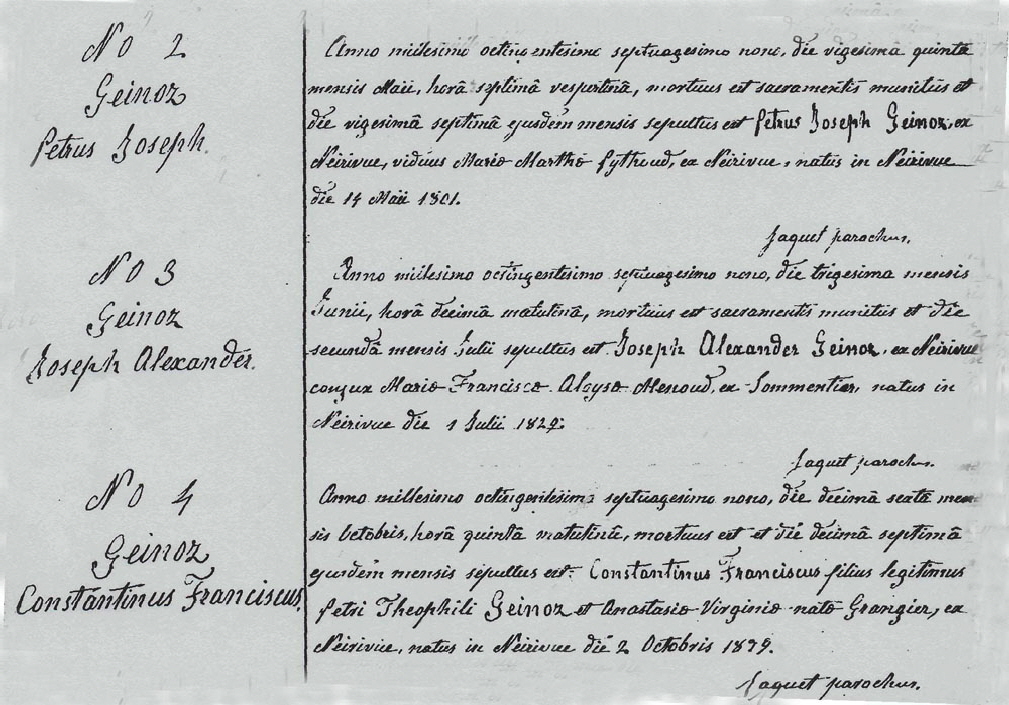 No 2
Geinoz
Petrus Joseph.
Anno millesimo octingentesimo septuagesimo nono, die vigesimâ quintâ
mensis Maii, horâ septimâ vespertinâ, mortuus est sacramentis munitus et
die vigesimâ septimâ ejusdem mensis sepultus est Petrus Joseph Geinoz, ex
Neirivue, viduus Mariæ Marthæ Pythoud, ex Neirivue, natus in Neirivue
die 14 Maii 1801.
Jaquet parochus.
No 3
Geinoz
Joseph Alexander.
Anno millesimo octingentesimo septuagesimo nono, die trigesima mensis
Junii, horâ decimâ matutinâ, mortuus est sacramentis munitus et die
secundâ mensis Julii sepultus est Joseph Alexander Geinoz, ex Neirivue
conjux Mariæ Franciscæ Aloysæ ex Sommentier, natus in
Neirivue die 1 Julii
Jaquet parochus.
No 4
Geinoz
Constantinus Franciscus.
Anno millesimo octingentesimo septuagesimo nono, die decimâ sextâ men-
sis Octobris, horâ quintâ matutinâ, mortuus est et die decimâ septimâ
ejusdem mensis sepultus est Constantinus Franciscus filius legitimus
Petri Theophili Geinoz et Anastasiæ Virginiæ natæ Grangier, ex
Neirivue, natus in Neirivue die 2 Octobris 1879.
Jaquet parochus.